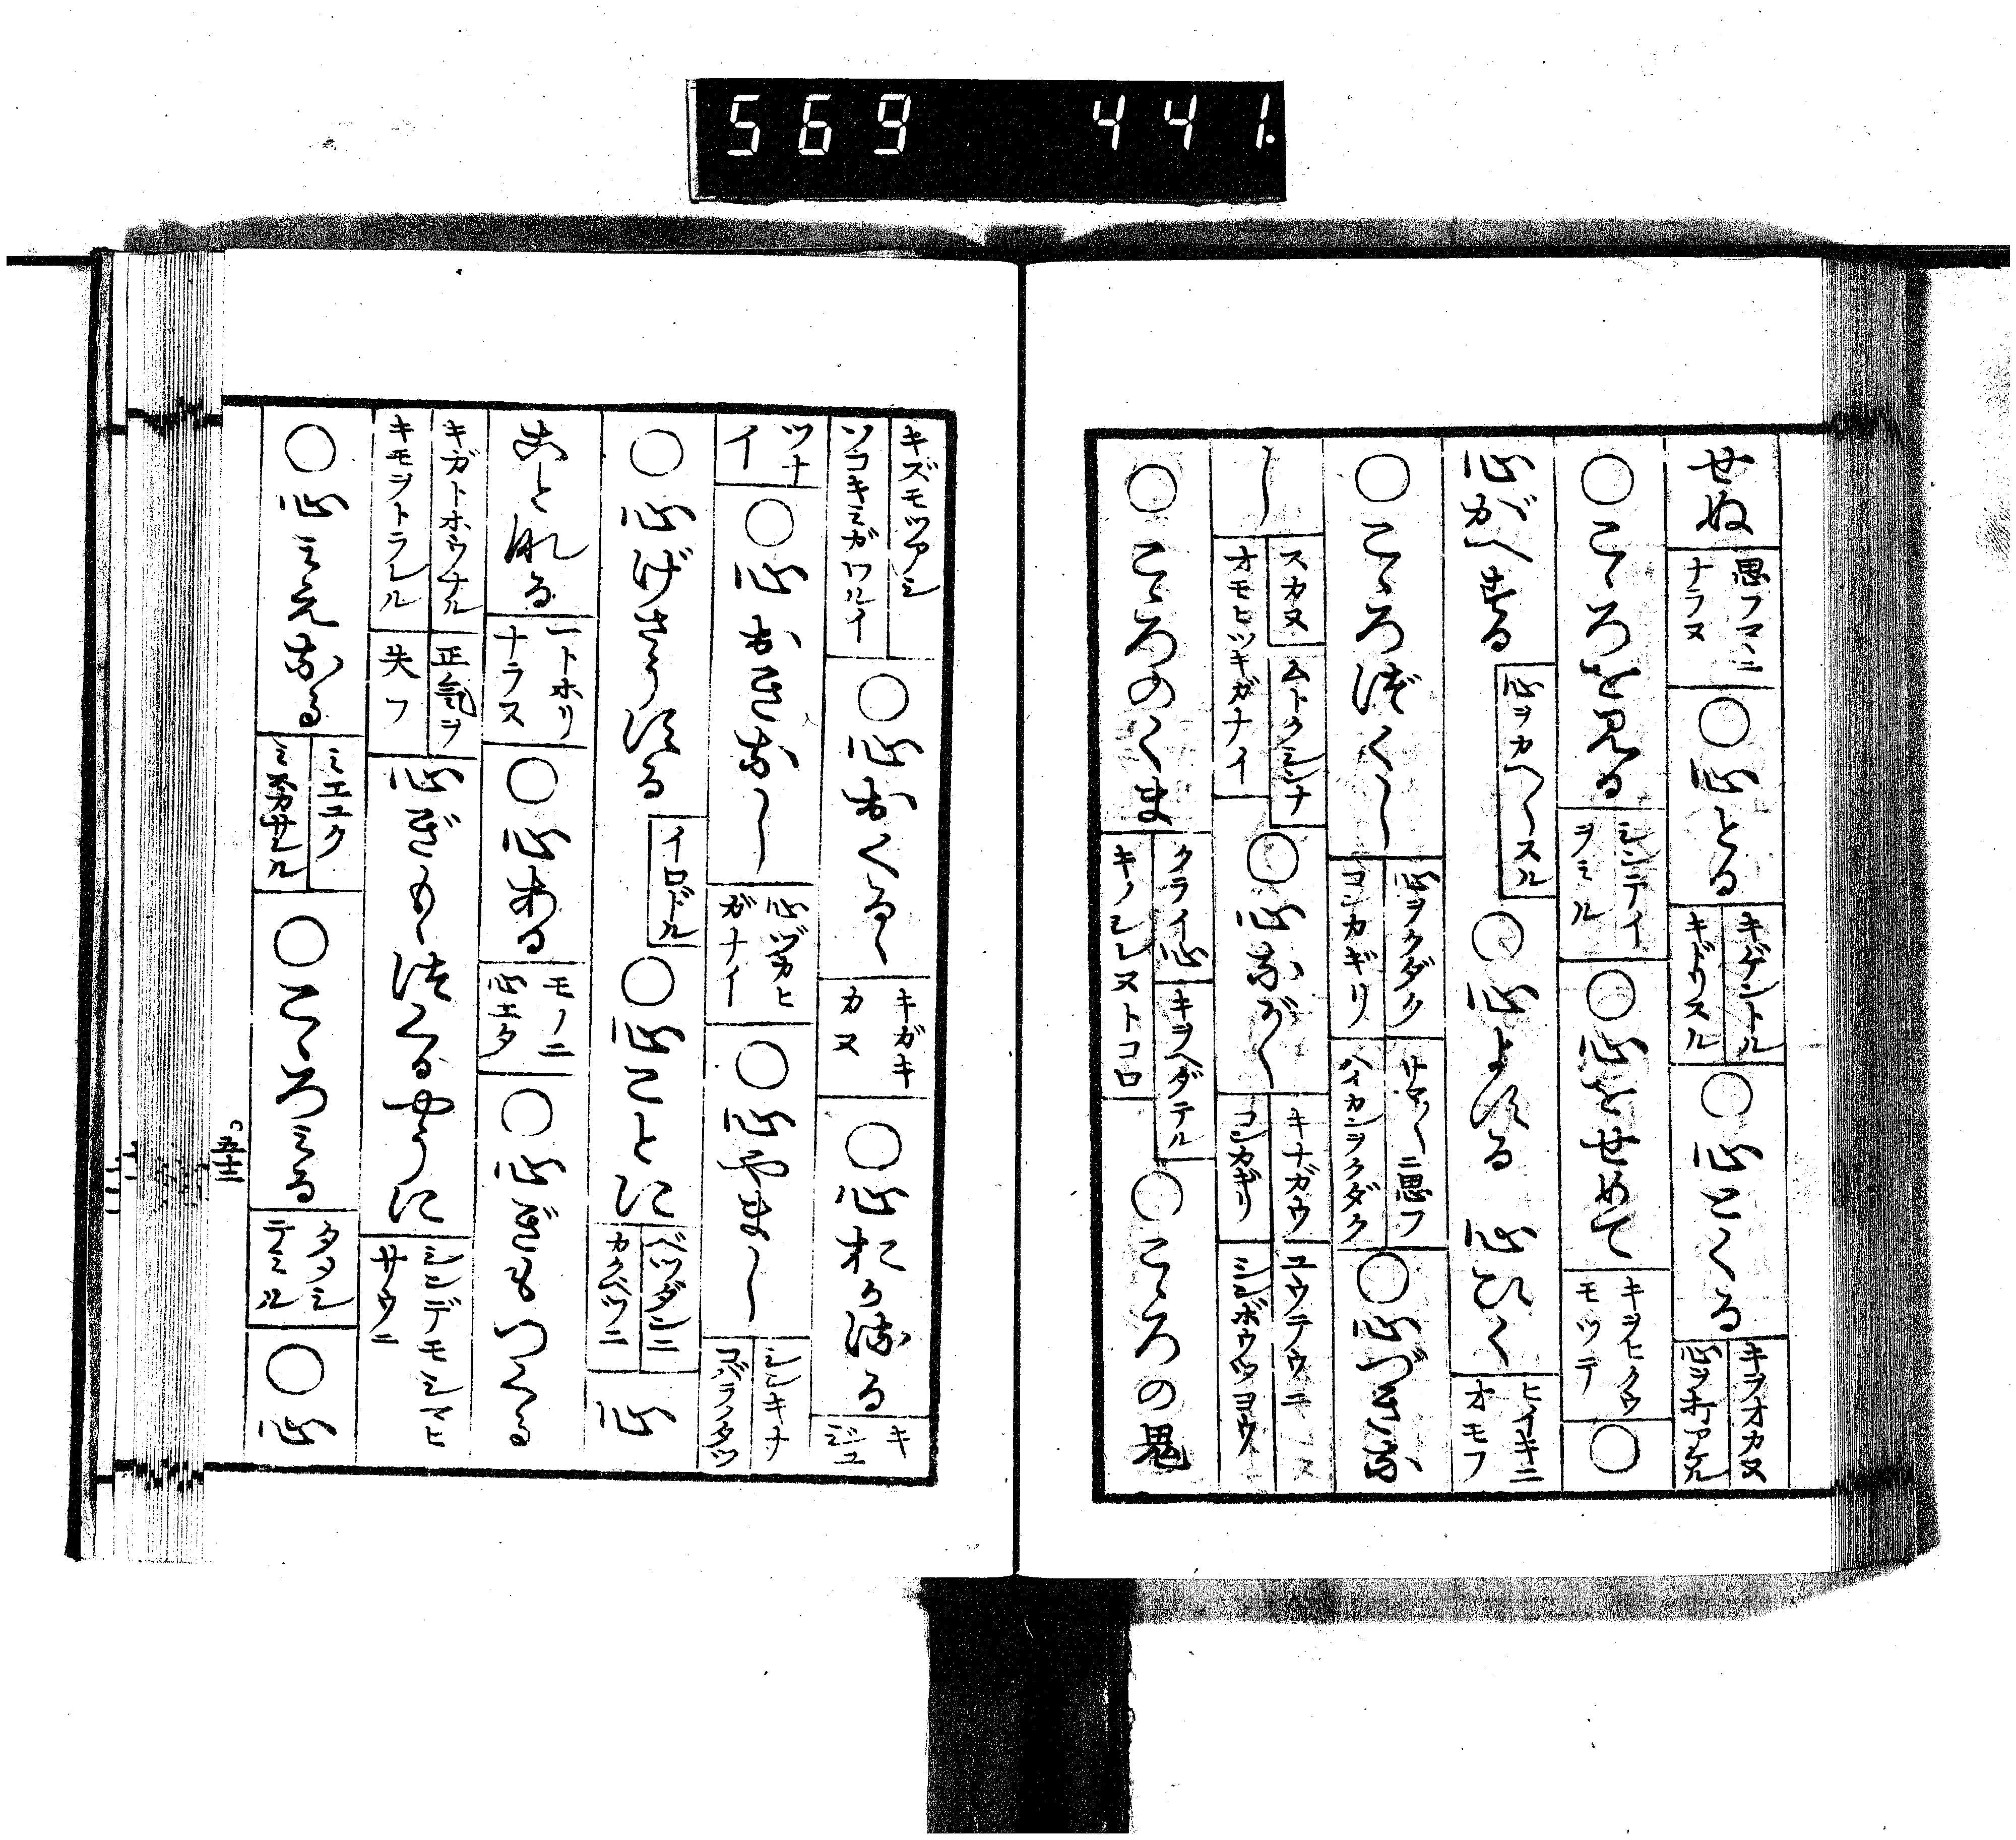 569 441.
せぬ 思フマヽニナラヌ ○心とる キゲントル キドリスル ○心こくる キヲオカヌ
○こゝろを見る シンテイヲミル ○心をせめて キヲヒクウモツテ ○
心がへする 心ヲカヘ〱スル ○心よする 心ひく ヒイキニオモフ
○こゝろづくし 心ヲクダク コンカギリ サマ〲ニ思フ ハイカンヲクダク ○心づきな
し スカヌ オモヒツキガナイ ムトクシンナ ○心ながし キナガウ コンカギリ ユウチウニ シンボウツヨウ
○こゝろのくま クライ心 キノシレヌトコロ キヲヘダテル ○こゝろの鬼
キズモツアシ ソコキミガワルイ ○心おくるゝ キガキカヌ ○心おかるる キ
ツナイ ○心おきなし 心ヅカヒガナイ ○心やまし シンキナ
○心げさうする イロドル ○心ことに ベツダンニ カクベツニ 心
あとれる 一トホリナラヌ ○心ある モノニ心エタ ○心ぎもつくる
キガトホウナル キモヲトラルル 正気ヲ失フ 心ぎもゝつくるやうに シンデモシマヒサウニ
○心みえなる ミエユク ミスカサルル ○こゝろみる タメシテミル ○心
五十二